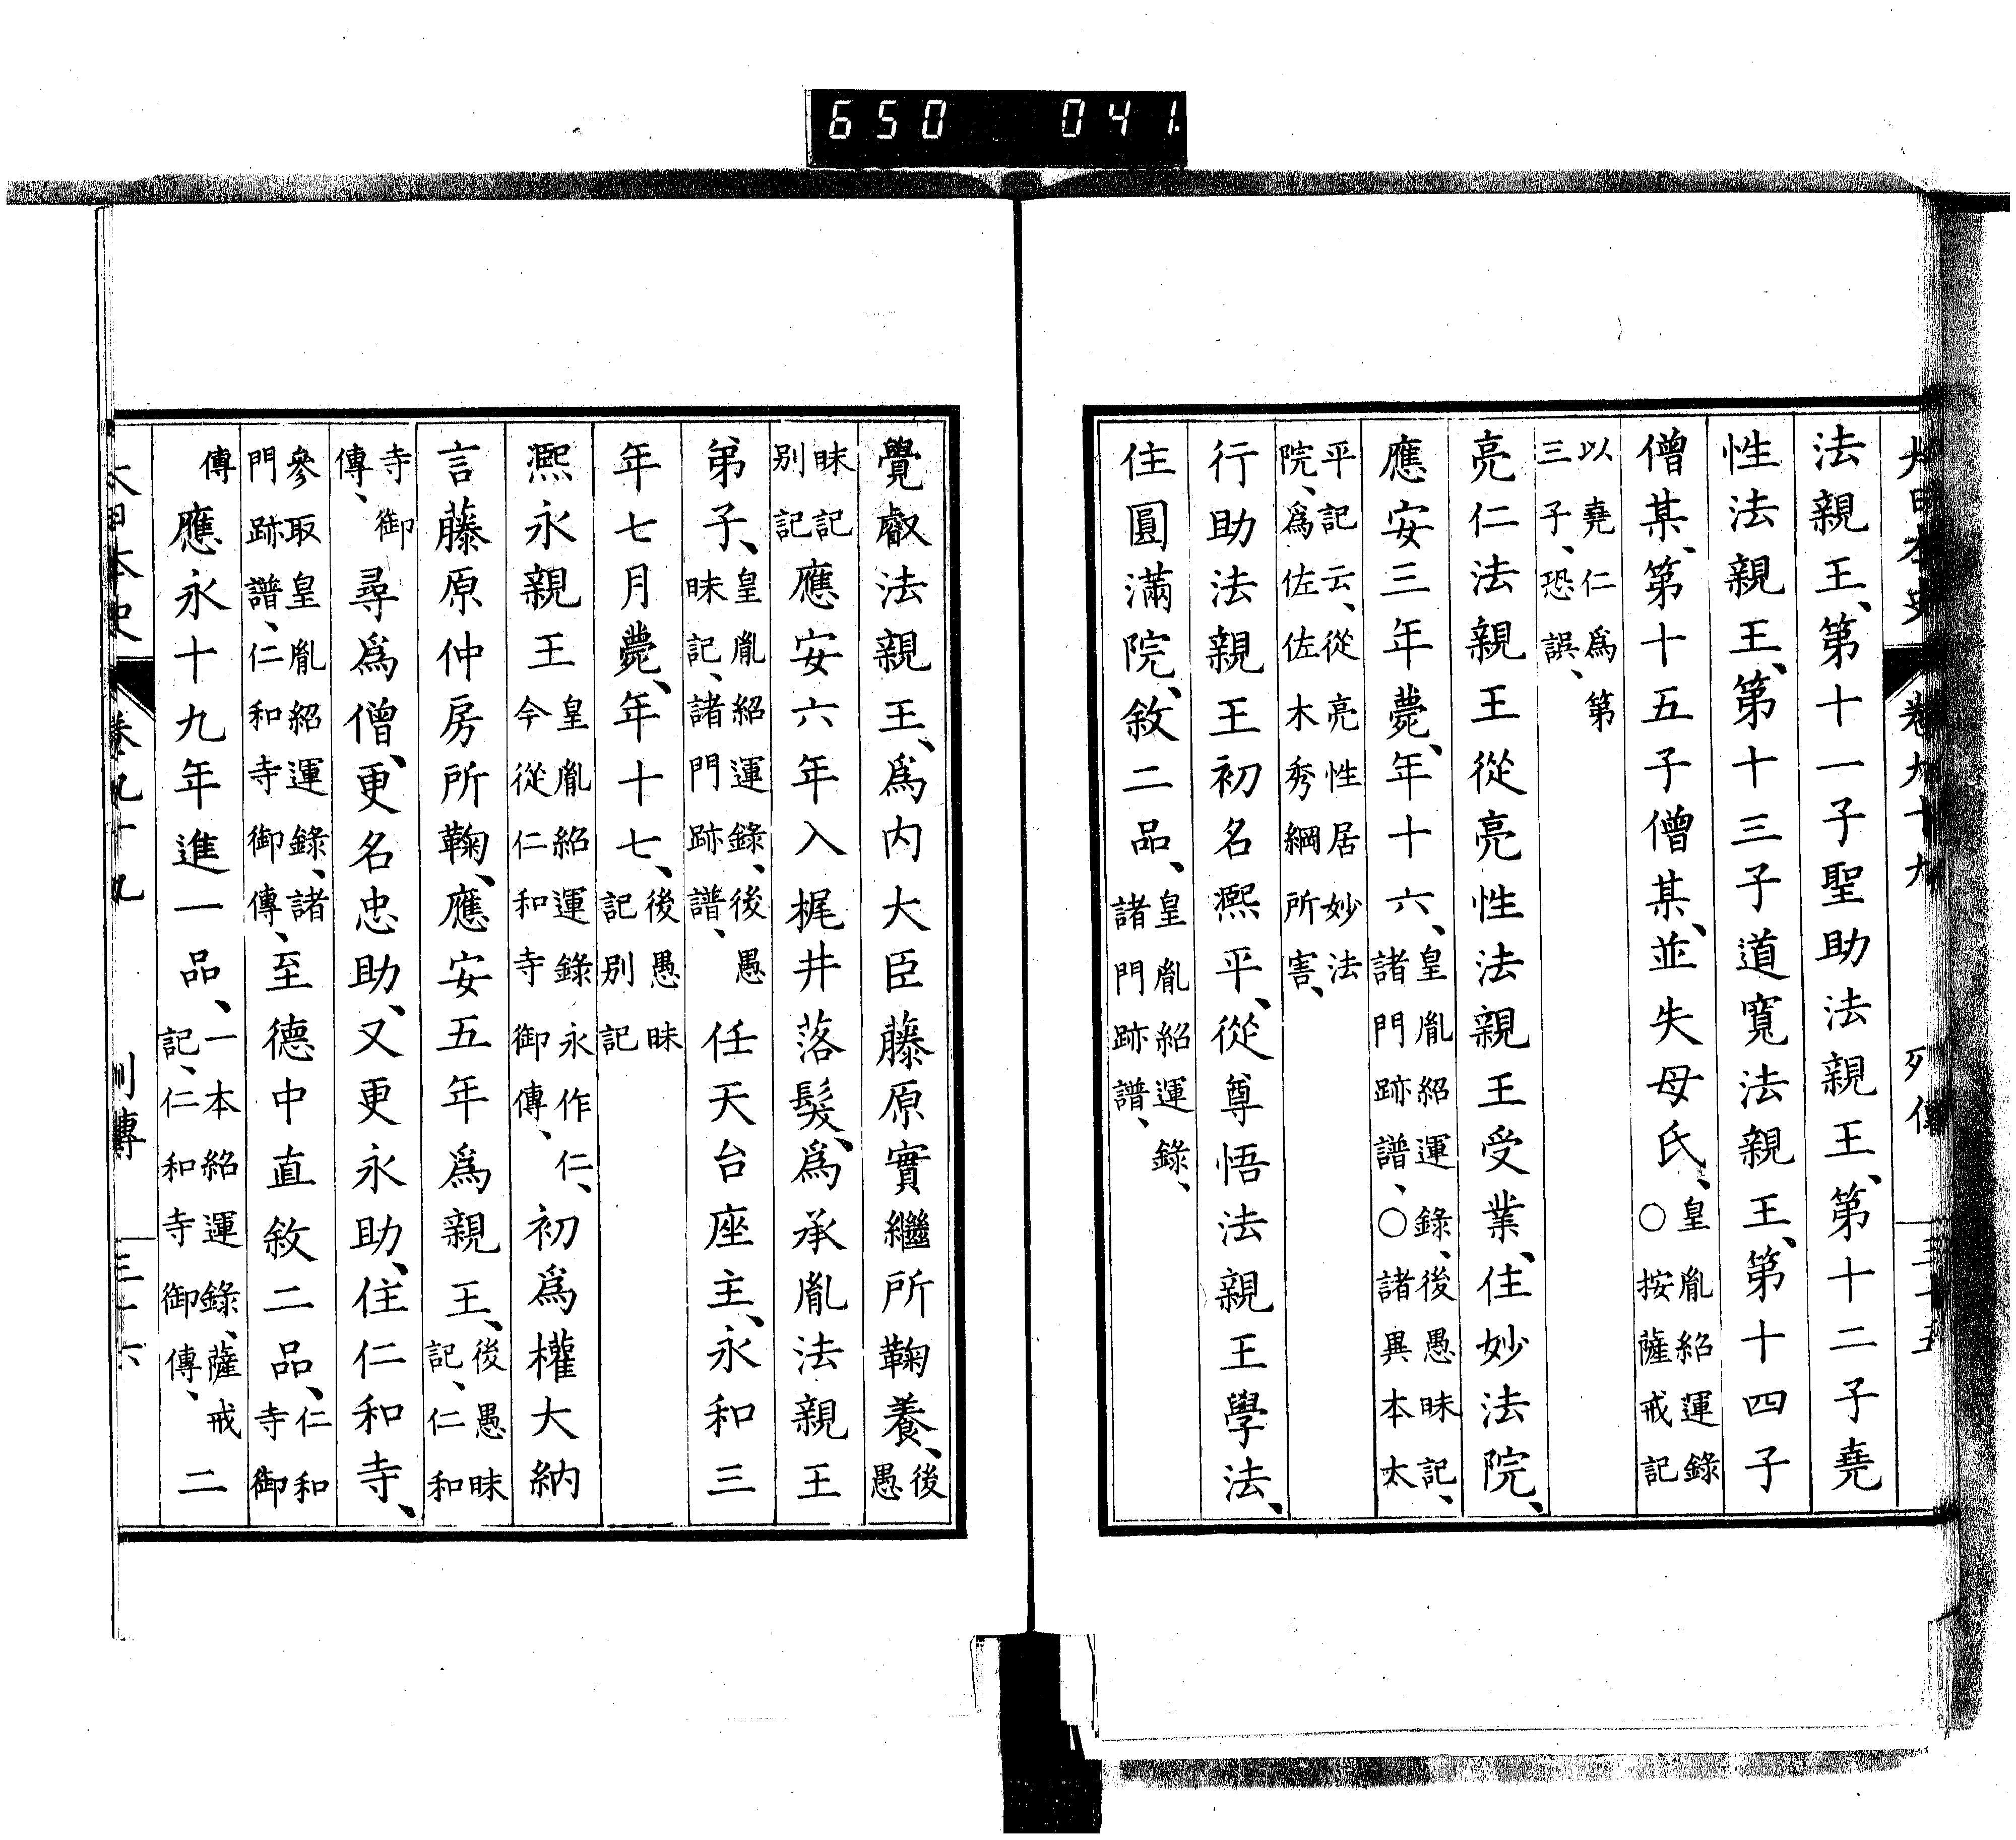 650 041.
大日本史 卷九十九 列傳 三十五
法親王、第十一子聖助法親王、第十二子堯
性法親王、第十三子道寬法親王、第十四子
僧某、第十五子僧某、並失母氏、皇胤紹運錄○按薩戒記
以堯仁爲第三子、恐誤、
亮仁法親王從亮性法親王受業、住妙法院、
應安三年薨、年十六、皇胤紹運錄、後愚昧記、諸門跡譜、○諸異本太
平記云、從亮性居妙法院、爲佐佐木秀綱所害、
行助法親王初名熈平、從尊悟法親王學法、
住圓滿院、敘二品、皇胤紹運錄、諸門跡譜、
覺叡法親王、爲内大臣藤原實繼所鞠養、後愚
昧記別記應安六年入梶井落髮、爲承胤法親王
弟子、皇胤紹運錄、後愚昧記、諸門跡譜、任天台座主、永和三
年七月薨、年十七、後愚昧記別記
熈永親王皇胤紹運錄永作仁、今從仁和寺御傳、初爲權大納
言藤原仲房所鞠、應安五年爲親王、後愚昧記、仁和
寺御傳、尋爲僧、更名忠助、又更永助、住仁和寺、
參取皇胤紹運錄、諸門跡譜、仁和寺御傳、至德中直敘二品、仁和寺御
傳應永十九年進一品、一本紹運錄、薩戒記、仁和寺御傳、二
大日本史 卷九十九 列傳 三十六